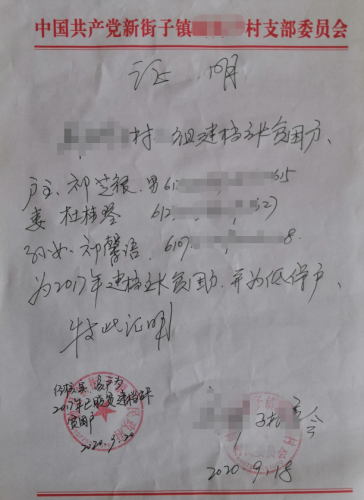 中国共产党新街子镇 村支部委员会
证 明
村 组建档立卡贫困户、
户主、祁芝银、男 61 615
妻 杜桂琴 612 527
孙女、祁馨语、6107 8
为2017年建档立卡贫困户、并为低保户、
特此证明
经核实 该户为
2017年已脱贫建档立卡
贫困户
2020.9.20
子 村 委会
2020 9.18